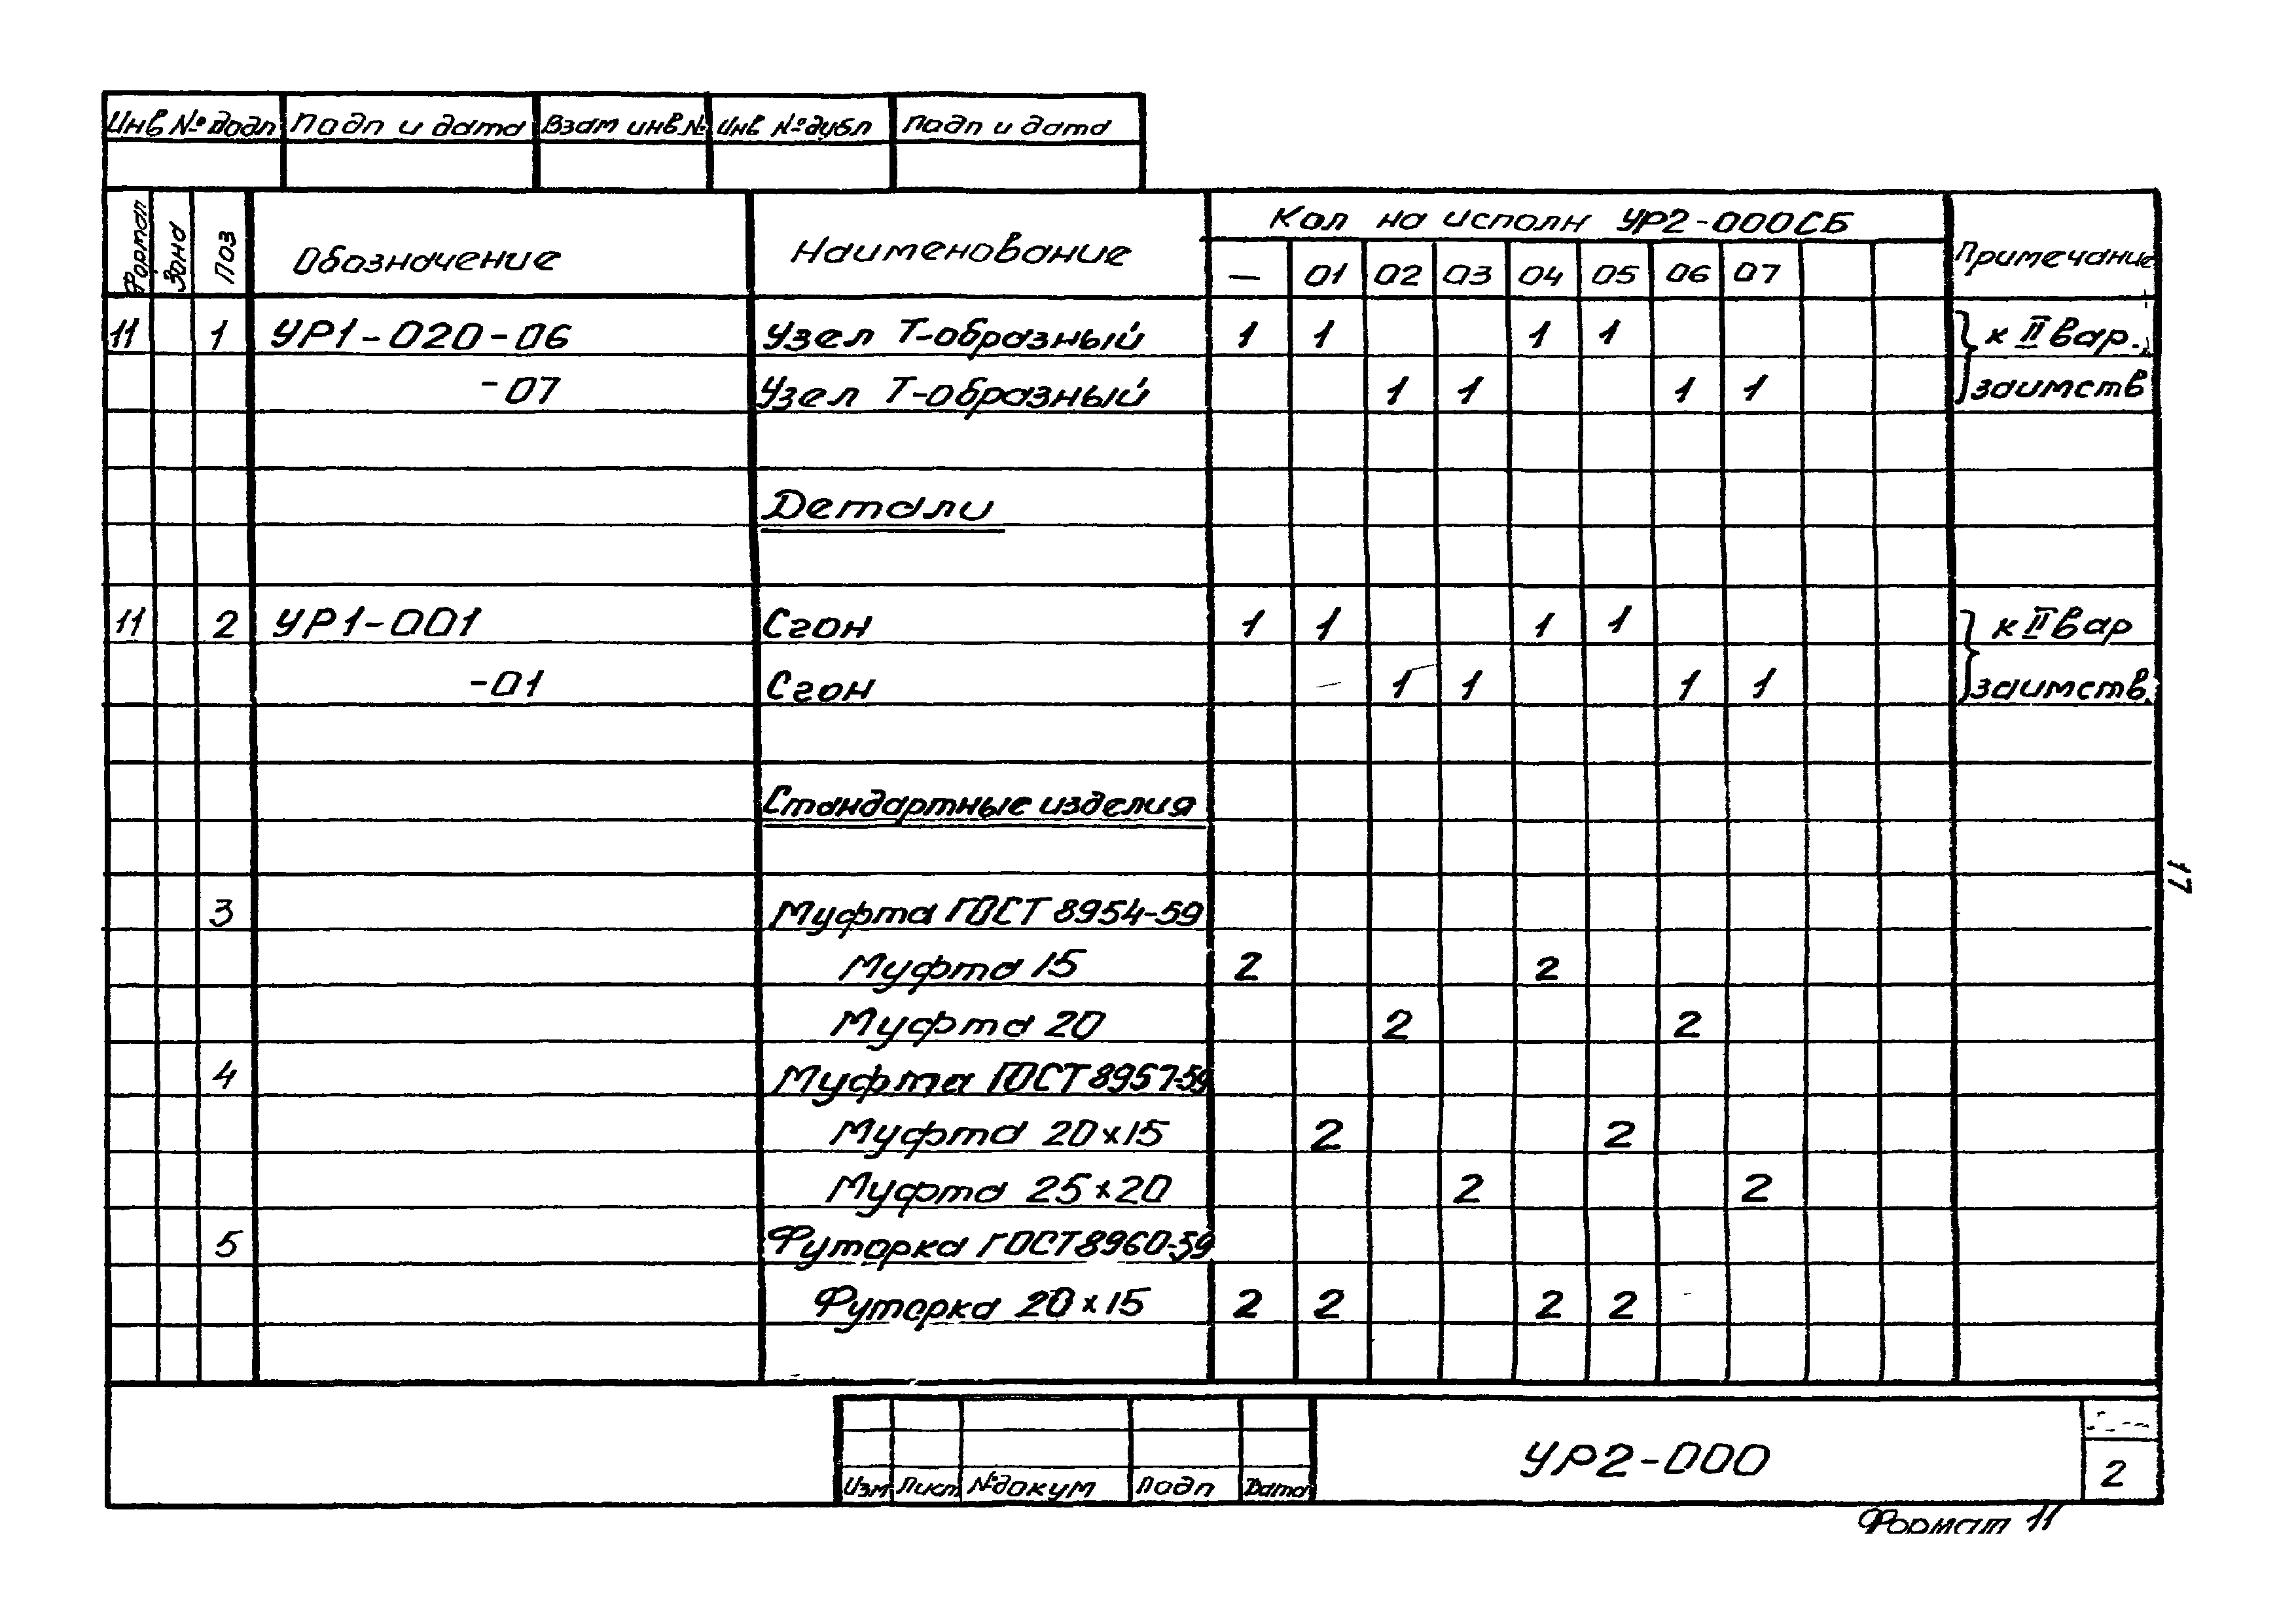 Инв № подл Подп и дата Взам инв № Инв № дубл Подп и дата
Формат Зона Поз Обозначение Наименование Кол на исполн УР2-000СБ Примечание
— 01 02 03 04 05 06 07
11 1 УР1-020-06 Узел Т-образный 1 1 1 1 } к II вар.
-07 Узел Т-образный 1 1 1 1 заимств
Детали
11 2 УР1-001 Сгон 1 1 1 1 } к II вар
-01 Сгон 1 1 1 1 заимств.
Стандартные изделия
3 Муфта ГОСТ 8954-59
Муфта 15 2 2
Муфта 20 2 2
4 Муфта ГОСТ 8957-59
Муфта 20×15 2 2
Муфта 25×20 2 2
5 Футорка ГОСТ 8960-59
Футорка 20×15 2 2 2 2
17
Изм Лист № докум Подп Дата
УР2-000
2
Формат 11